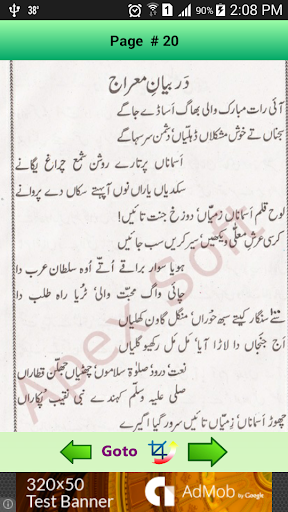 38° 90% 2:08 PM
Page # 20
در بیانِ معراج
آئی رات مبارک والی بھاگ اساڈے جاگے
سجناں تے خوش مشکلاں ڈہلیاں دشمن سر سہاگے
اسماناں پر تارے روشن شمع چراغ یگانے
سکدیاں یاراں نوں آپہتے سکاں دے پروانے
لوح قلم اسماناں زمیاں دوزخ جنت تائیں!
کرسی عرشِ معلّٰی ویکھیں سیر کریں سب جائیں
ہویا سوار براقے اُتے اُوہ سلطان عرب دا
جائی واگ محبّت والی ٹریا راہ طلب دا
سنگار کیتے سبھ حوراں منگل گاون کھلیاں
اج جنجاں دا لاڑا آیا مل مل رکھیو گلیاں
نعت درود صلوٰۃ سلاموں چھٹیاں قطاراں
صلی علیہ وسلّم کہندے نبی نقیب
چھوڑ اسماناں زمیاں تائیں سرور گیا اگیرے
Apex Soft
Goto
320x50
Test Banner
AdMob by Google